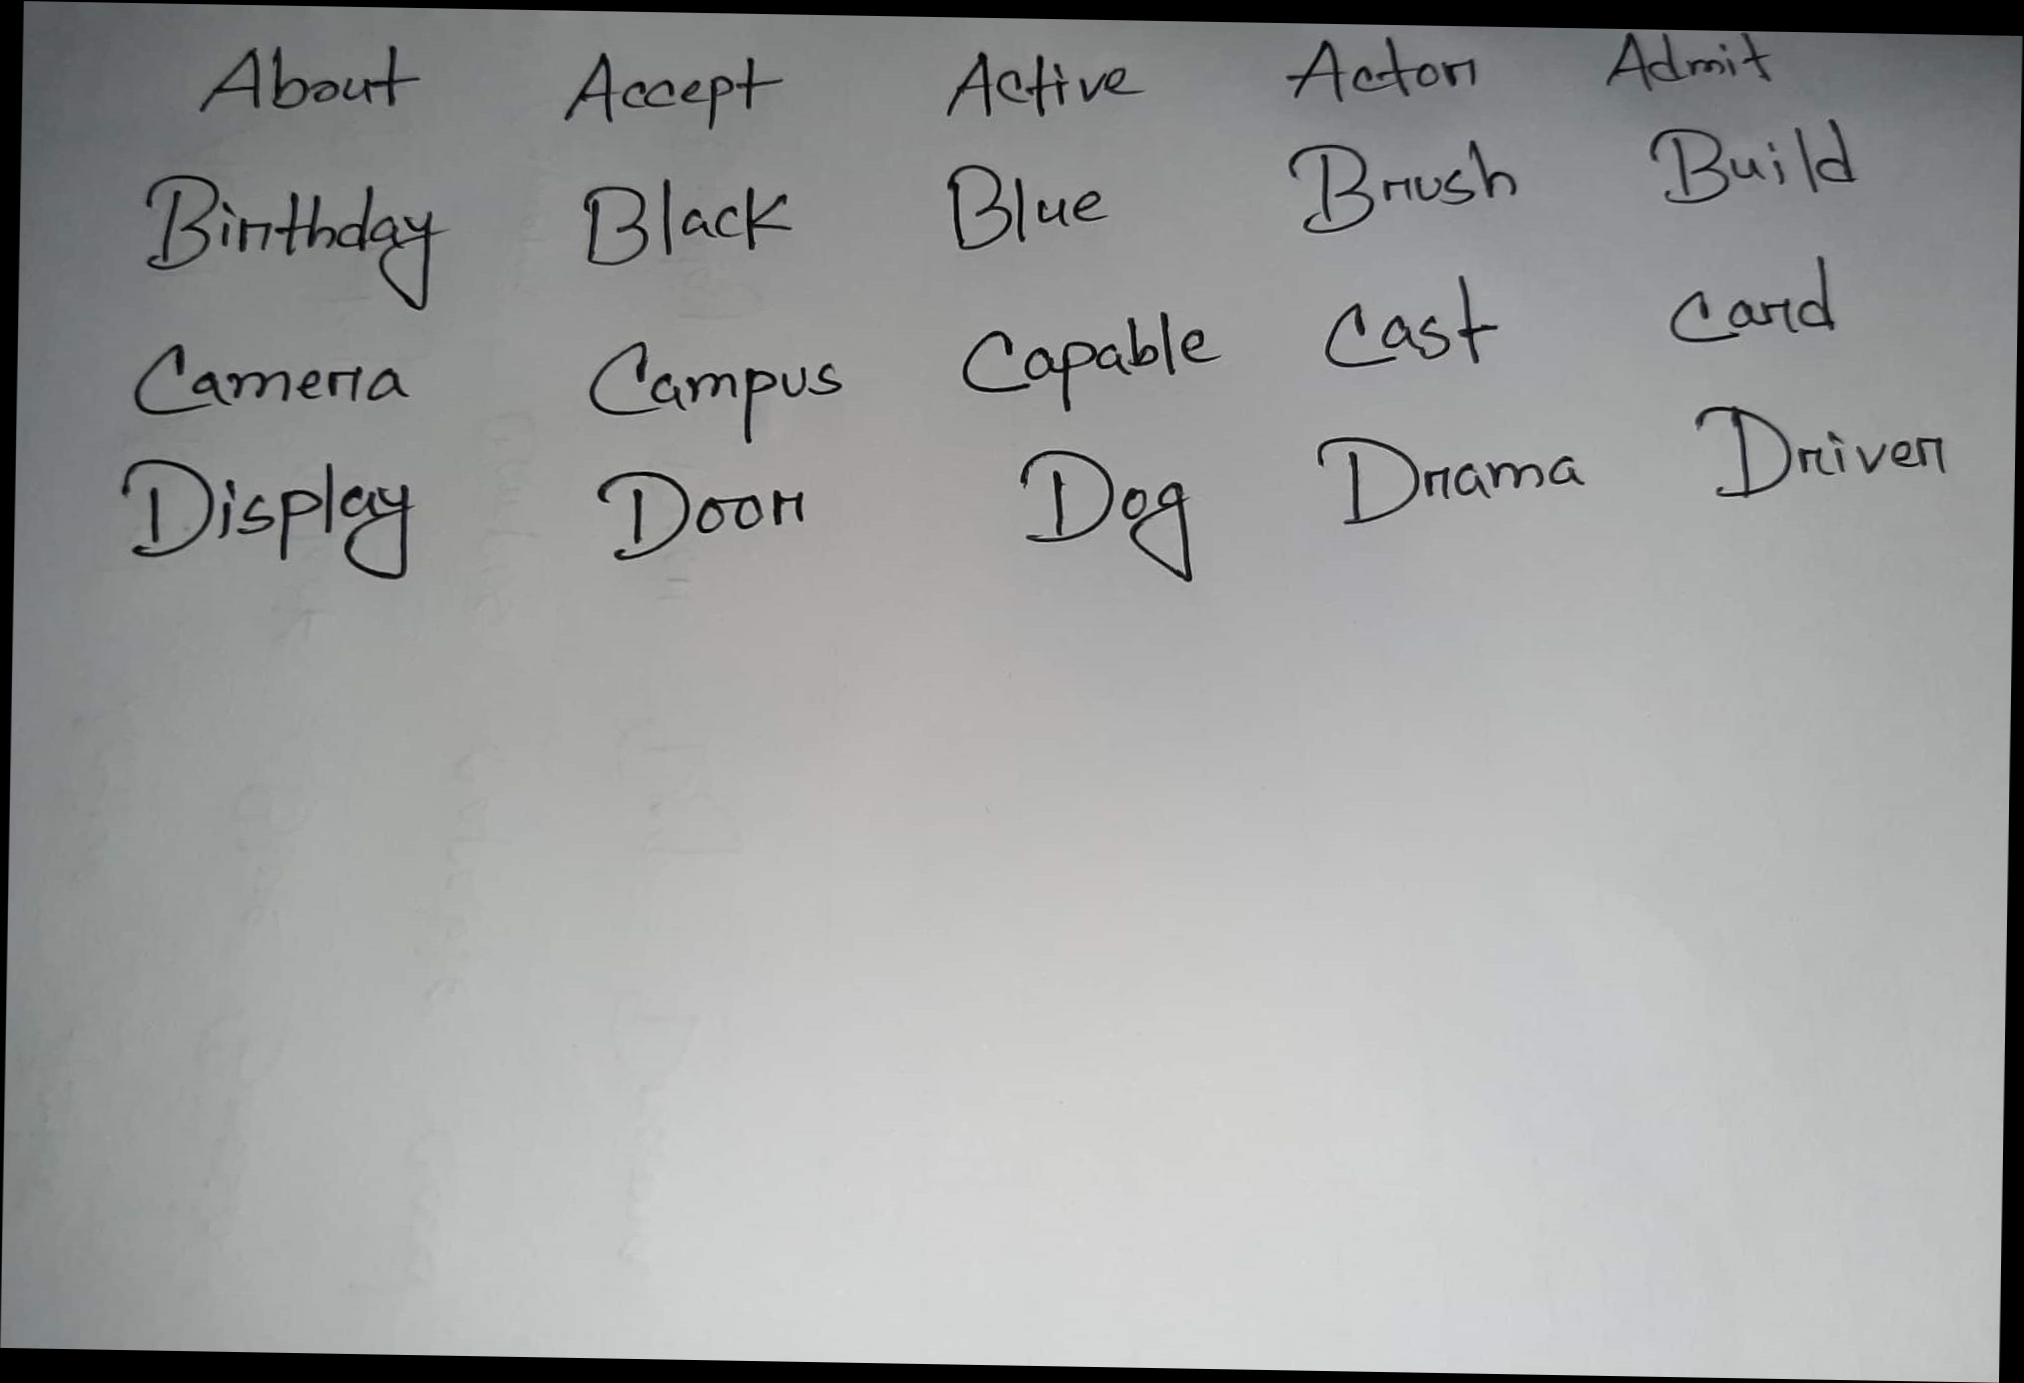 About Accept Active Actor Admit
Birthday Black Blue Brush Build
Camera Campus Capable Cast Card
Display Door Dog Drama Driver